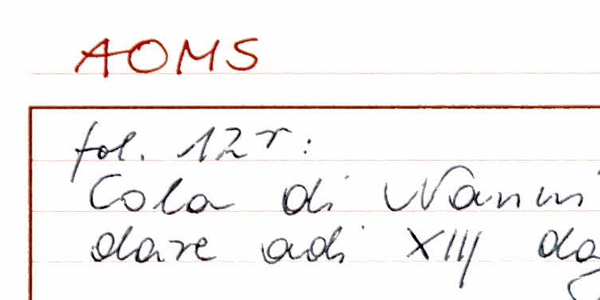 AOMS
fol. 12r:
Cola di Nanni
dare adi XIII